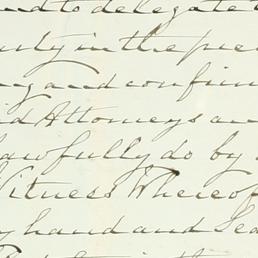 and to delegate a
in the pre
and confirm
Attorneys an
lawfully do by
Witness Whereof
hand and Sea